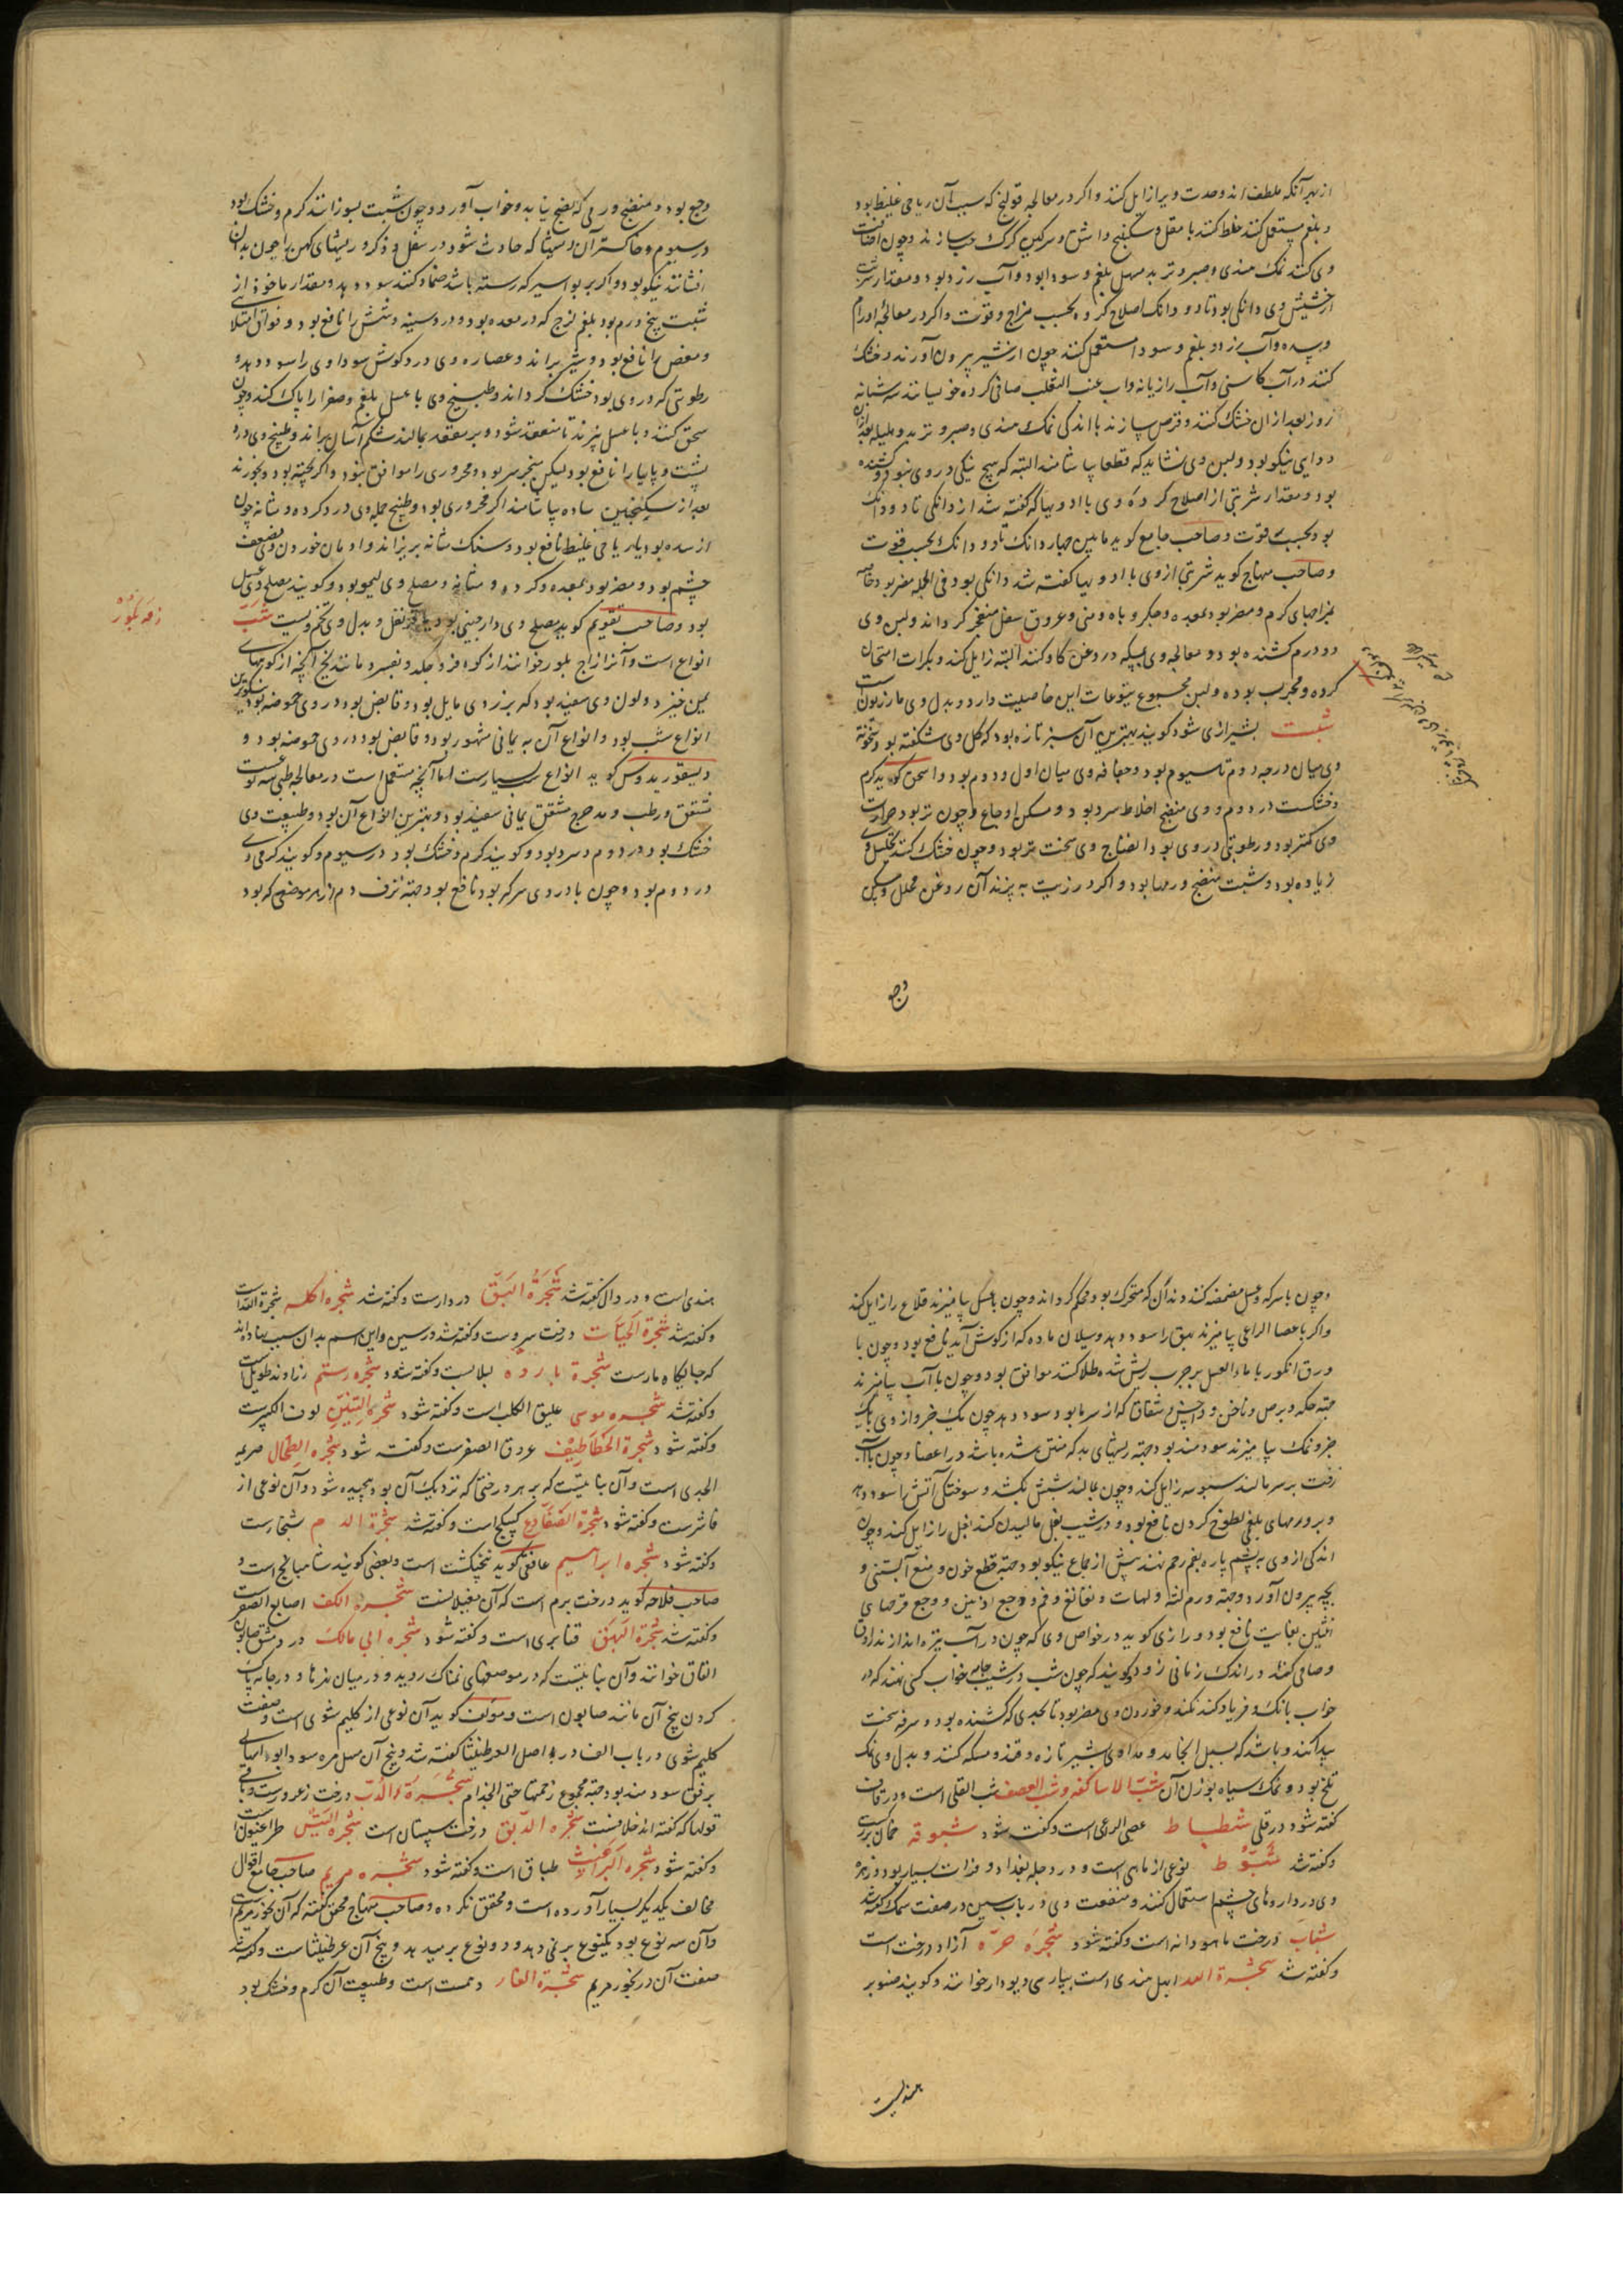 از بهر آنکه ملطف اند وحدت ویرا زایل کنند واکر در معالجه قولنج که سبب آن ریاحی غلیظ بود
و بلغم مستعمل کنند خلط کنند با مقل و سکبینج و اشق و سرکین کرک حب سازند و چون اضافت
وی کنند نمک هندی و صبر و تربد مسهل بلغم و سودا بود و آب زرد بود و مقدار شربت
از حشیش وی دانکی بود تا دو دانک اصلاح کرده بحسب مزاج و قوت واکر در معالجه اورام
و سده و آب زرد و بلغم و سودا مستعمل کنند چون از شیر بیرون آورند و خشک
کنند در آب کاسنی و آب رازیانه و آب عنب الثعلب صافی کرده خیسانند سه شبانه
روز بعد ازان خشک کنند و قرص سازند با اندکی نمک هندی و صبر و تربد و هلیله بعد ازان
دوایی نیکو بود و لبن وی نشاید که قطعا بیاشامند البته که هیچ نیکی در وی نبود و کشنده
بود و مقدار شربتی از اصلاح کرده وی با ادویها که کفته شد از دانکی تا دو دانک
بود بحسب قوت و صاحب جامع کوید مابین چهار دانک تا دو دانک بحسب قوت
و صاحب منهاج کوید شربتی ازوی با ادویها کفته شد دانکی بود فی الجمله مضر بود خاصه
بمزاجهای کرم و مضر بود بمعده و جکر و باه و منی و عروق سفل منفجر کرداند و لبن وی
دو درم کشنده بود و معالجه وی بمسکه و روغن کاو کنند البته زایل کند و بکرات امتحان
کرده و مجرب بوده و لبن مجموع یتوعات این خاصیت دارد و بدل وی مازریون است
شبت بشیرازی شود کویند بهترین آن سبز تازه بود که کل وی شکفته بود و سخونة
وی میان درجه دوم تا سیوم بود و جفافه وی میان اول و دوم بود و اسحق کوید کرم
و خشکست در دوم و وی منضج اخلاط سرد بود و مسکن اوجاع و چون تر بود حرارت
وی کمتر بود و رطوبتی در وی بود انضاج وی سخت تر بود و چون خشک کنند تحلیل وی
زیاده بود و شبت منضج ورمها بود و اکر در زیت به پزند آن روغن محلل و مسکن
وجع
وجع بود و منضج ورمی که نضج نیابد و خواب آورد و چون شبت بسوزانند کرم و خشک بود
در سیوم و خاکستر آن ریشها که حادث شود در سفل و ذکر و ریشهای کهن را چون بدان
افشانند نیکو بود و اکر بر بواسیر که رسته باشد ضماد کنند سود دهد و مقدار ماخوذ از
شبت پنج درم بود بلغم لزج که در معده بود و در سینه و شش را نافع بود و فواق امتلایی
و مغص را نافع بود و شیر براند و عصاره وی درد کوش سوداوی را سود دهد و
رطوبتی که در وی بود خشک کرداند و طبیخ وی با عسل بلغم و صفرا را پاک کند و چون
سحق کنند و با عسل بپزند تا منعقد شود و بر مقعد بمالند شکم آسان براند و طبیخ وی درد
پشت و پایها را نافع بود لیکن مبخر سر بود و محروری را موافق نبود و اکر پخته بود و بخورند
بعد از سکنجبین ساده بیاشامند اکر محروری بود و طبیخ جمله وی درد کرده و مثانه چون
از سده بود یا ریاحی غلیظ نافع بود و سنک مثانه بریزاند و ادمان خوردن وی مضعف
چشم بود و مضر بود بمعده و کرده و مثانه و مصلح وی لیمو بود و کویند مصلح وی عسل
بود و صاحب تقویم کوید مصلح وی دارچینی بود یا قرنفل و بدل وی تخم ویست شب
انواع است و آنرا زاج بلور خوانند از کوه فرو چکد و بفسرد مانند یخ آنچه از کوههای
یمن خیزد و لون وی سفید بود که بزردی مایل بود و قابض بود و در وی حموضه بود نیکوترین
انواع شب بود و انواع آن به یمانی مشهور بود و قابض بود و در وی حموضه بود و
دیسقوریدوس کوید انواع شب بسیارست اما آنچه مستعمل است در معالجه طبی سه نوعست
مشقق و رطب و مدحرج مشقق یمانی سفید بود و بهترین انواع آن بود و طبیعت وی
خشک بود در دوم و سرد بود و کویند کرم و خشک بود در سیوم و کویند کرمی وی
در دوم بود و چون با دردی سرکه بود نافع بود جهة نزف دم از هر موضعی که بود
زمه بلور
و چون با سرکه و عسل مضمضه کنند دندان که متحرک بود محکم کرداند و چون با عسل بیامیزند قلاع را زایل کند
واکر با عصا الراعی بیامیزند بهق را سود دهد و سیلان ماده که از کوش آید نافع بود و چون با
ورق انکور یا ماء العسل بر جرب ریش شده طلا کنند موافق بود و چون با آب بیامیزند
جهة حکه و برص و ناخن و داحس و شقاق که از سرما بود سود دهد چون یک جزو از وی با یک
جزو نمک بیامیزند سودمند بود جهة ریشهای بد که منتن شده باشد در اعضا و چون با آب
زفت بر سر مالند سبوسه زایل کند و چون بمالند شپش بکشد و سوختکی آتش را سود دهد
و بر ورمهای بلغمی لطوخ کردن نافع بود و در شیب بغل مالیدن کند بغل را زایل کند و چون
اندکی از وی به پشم پاره بفم رحم نهند پیش از جماع نیکو بود جهة قطع خون و منع آبستنی و
بچه بیرون آورد و جهة ورم لثه و لهات و نغانغ و فم و وجع اذنین و وجع قرصای
انثیین بغایت نافع بود و رازی کوید در خواص وی که چون در آب تیره اندازند راوق
و صافی کند در اندک زمانی زود و کویند که چون شب در شیب جامه خواب کسی نهند که در
خواب بانک و فریاد کند نکند و خوردن وی مضر بود تا بحدی که کشنده بود و سرفه سخت
پیدا کند و باشد که بسل انجامد و مداوای بشیر تازه و قند و مسکه کنند و بدل وی نمک
تلخ بود و نمک سیاه بوزن آن شب الاساکفه و شب العصفر شب القلی است و در قاف
کفته شود در قلی شطباط عصی الراعی است و کفته شود شبوقه خمان بزرکست
و کفته شد شبوط نوعی از ماهی است و در دجله بغداد و فرات بسیار بود و زهره
وی در داروهای چشم استعمال کنند و منفعت وی در باب سین در صفت سمک کفته شد
شباب درخت ماهودانه است و کفته شود شجره حره آزاد درخت است
و کفته شد شجرة الله ابهل هندی است بپارسی دیودار خوانند و کویند صنوبر
هندیست
هندی است و در دال کفته شد شجرة البق دردارست و کفته شد شجره اکله شجرة الله است
و کفته شد شجرة الحیات درخت سروست و کفته شد در سین و این اسم بدان سبب نهاده اند
که جایکاه مارست شجرة بارده لبلابست و کفته شود شجره رستم زراوند طویل است
و کفته شد شجره موسی علیق الکلب است و کفته شود شجرة التنین لوف الکبیرست
و کفته شود شجرة الخطاطیف عروق الصفرست و کفته شود شجره الطحال صریمه
الجدی است و آن نباتیست که بر هر درختی که نزدیک آن بود پیچیده شود و آن نوعی از
فاشرست و کفته شود شجرة الضفادع کبیکج است و کفته شد شجرة الدم شنجارست
و کفته شود شجره ابراهیم غافقی کوید پنجنکشت است و بعضی کویند شاهبانج است و
صاحب فلاحه کوید درخت برم است که آن مغیلانست شجره الکف اصابع الصفر است
و کفته شد شجرة البهق قنابری است و کفته شود شجره ابی مالک در دمشق صابون
القاق خوانند و آن نباتیست که در موضعهای نمناک روید و در میان نهرها و در جامه پاک
کردن بیخ آن مانند صابون است و مولف کوید آن نوعی از کلیم شوی است و صفت
کلیم شوی در باب الف در اصل العرطنیثا کفته شد و بیخ آن مسهل مره سودا بود
برفق سودمند بود جهة مجموع زحمتها حتی الجذام شجرة الدب درخت زعرورست و باقی
قولها که کفته اند خلافست شجره الدبق درخت سپستان است شجره التیس طراغیون است
و کفته شود شجره البراغیث طباق است و کفته شود شجره مریم صاحب جامع اقوال
مخالف یکدیکر بسیار آورده است و محقق نکرده و صاحب منهاج محقق کفته که آن بخور مریم است
و آن سه نوع بود یکنوع بر نمی دهد و دو نوع بر میدهد و بیخ آن عرطنیثاست و کفته شد
صفت آن در بخور مریم شجرة الغار دهمست است و طبیعت آن کرم و خشک بود